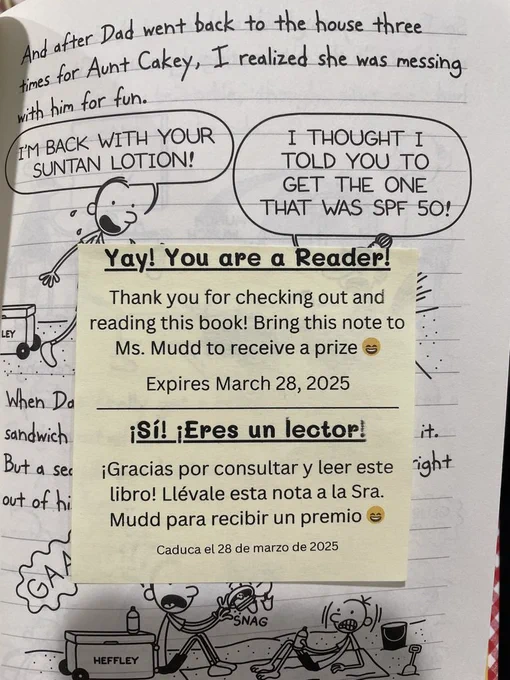 And after Dad went back to the house three
times for Aunt Cakey, I realized she was messing
with him for fun.
I'M BACK WITH YOUR
SUNTAN LOTION!
I THOUGHT I
TOLD YOU TO
GET THE ONE
THAT WAS SPF 50!
Yay! You are a Reader!
Thank you for checking out and
reading this book! Bring this note to
Ms. Mudd to receive a prize 😄
Expires March 28, 2025
¡Sí! ¡Eres un lector!
¡Gracias por consultar y leer este
libro! Llévale esta nota a la Sra.
Mudd para recibir un premio 😄
Caduca el 28 de marzo de 2025
LEY
When Da
sandwich it.
But a sec right
out of hi
GAA
SNAG
HEFFLEY